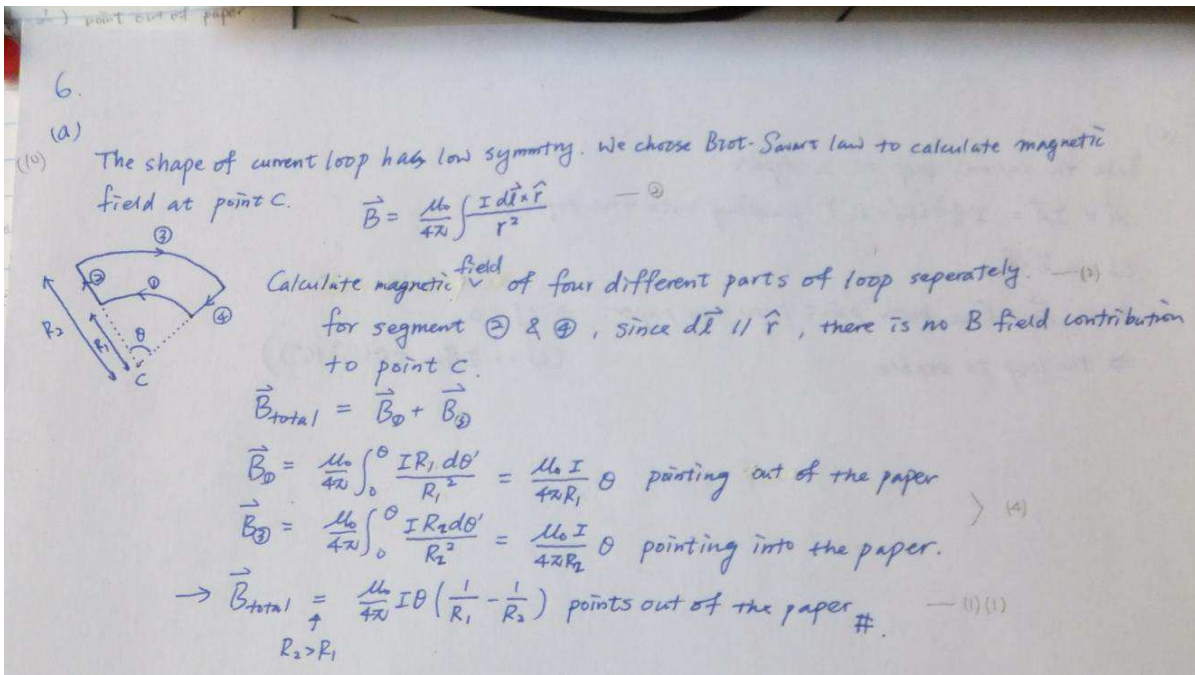 ) point out of paper
6.
(a)
(10)
The shape of current loop has low symmtry. We choose Biot-Savart law to calculate magnetic
field at point C.
B⃗ = μ₀/4π ∫ I dl⃗ × r̂ / r² — (2)
③
② ① ④
R₂ R₁ θ
C
Calculate magnetic field of four different parts of loop seperately. — (2)
for segment ② & ④, since dl⃗ // r̂, there is no B field contribution
to point C.
B⃗total = B⃗① + B⃗③
B⃗① = μ₀/4π ∫₀^θ I R₁ dθ' / R₁² = μ₀ I / 4πR₁ θ pointing out of the paper
(4)
B⃗③ = μ₀/4π ∫₀^θ I R₂ dθ' / R₂² = μ₀ I / 4πR₂ θ pointing into the paper.
→ B⃗total = μ₀/4π Iθ (1/R₁ - 1/R₂) points out of the paper #. — (1)(1)
↑
R₂>R₁